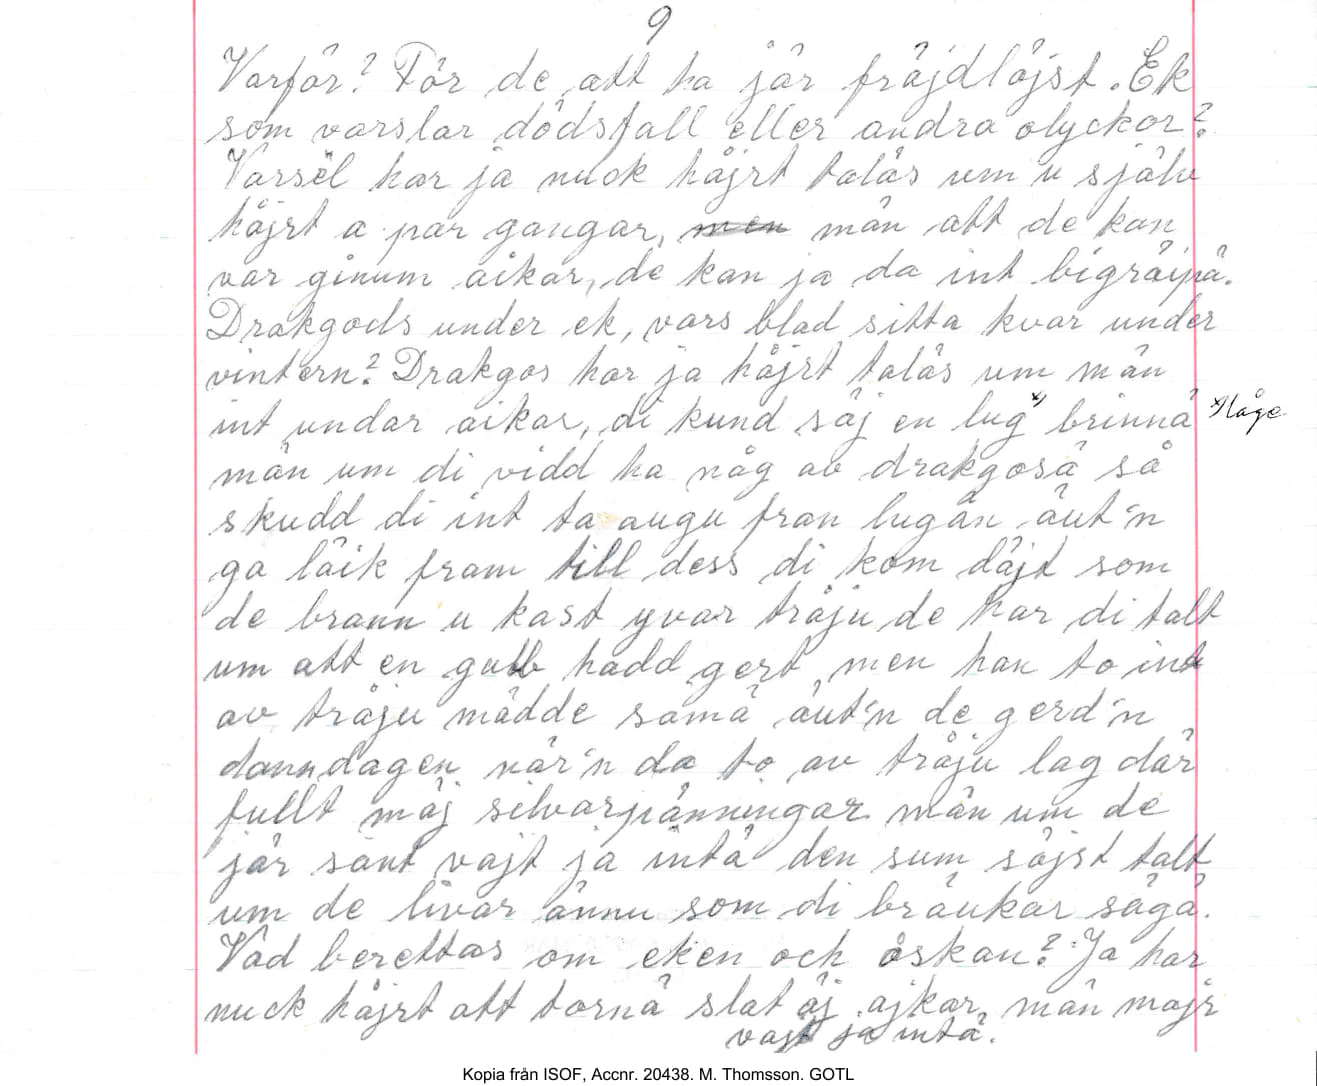 9
Varför? För de att ha jär fräjdlöjst. Ek
som varslar dödsfall eller andra olyckor?
Varsel har ja nuck håjrt taläs um u själv
håjrt a par gangar, men män att de kan
var ginum aikar, de kan ja da int bigräipä.
Drakgods under ek, vars blad sitta kvar under
vintern? Drakgos har ja håjrt taläs um män
int undar aikar, di kund säj en lug x) brinnä x) låge
män um di vidd ha någ av drakgosä så
skudd di int ta augu fran lugän äut'n
ga läik fram till dess di kom däjt som
de brann u kast yvar träju de har di talt
um att en gubb hadd gert, men han to int
av träju mädde samä äut'n de gerd'n
dann dagen när'n da to av träju lag där
fullt mäj silvarpänningar män um de
jär sant vajt ja intä den sum säjst talt
um de livar ännu som di bräukar sägä.
Vad berettas om eken och åskan? Ja har
nuck håjrt att tornä slat äj ajkar, män majr
vajt ja intä.
Kopia från ISOF, Accnr. 20438. M. Thomsson. GOTL